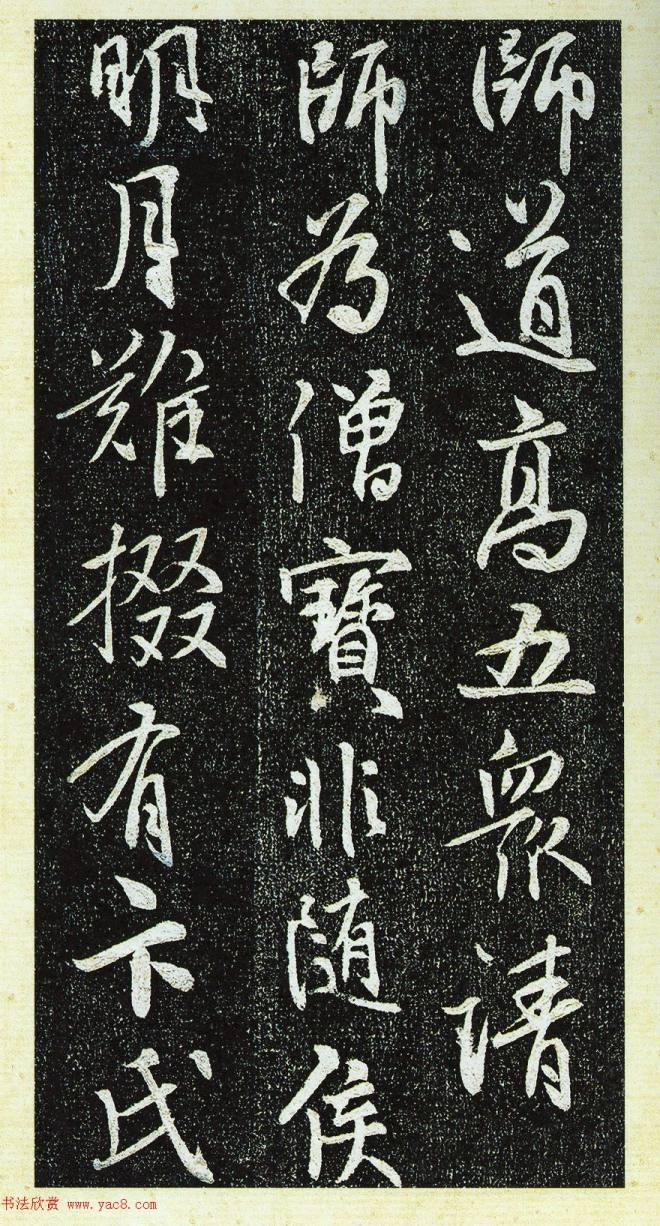 師道高五衆請
師為僧寶非随侯
明月難掇有卞氏
书法欣赏 www.yac8.com